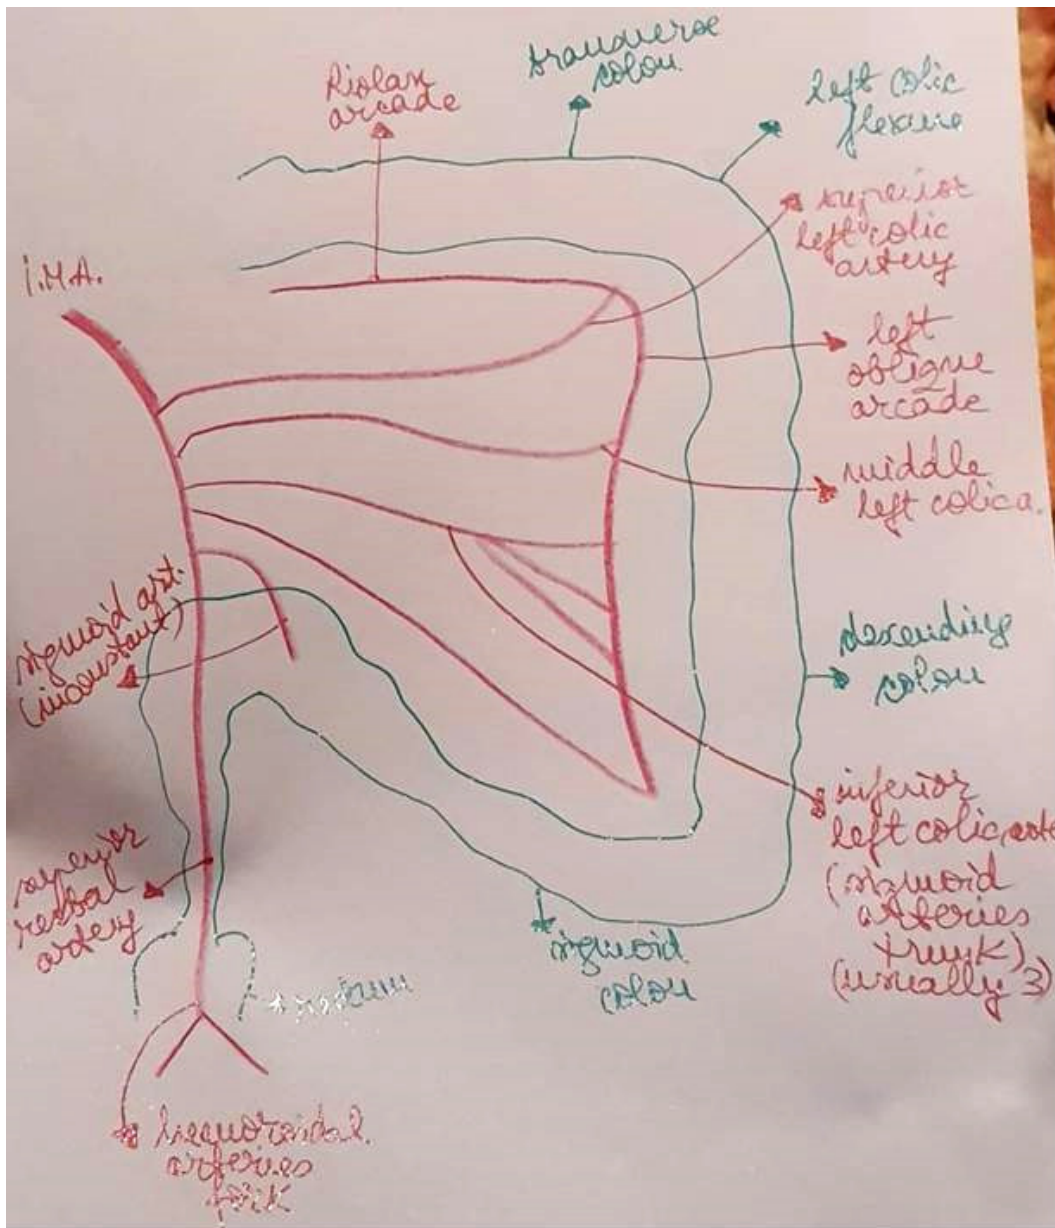 Riolan
arcade
transverse
colon
left colic
flexure
I.M.A.
superior
left colic
artery
left
oblique
arcade
middle
left colic a.
sigmoid art.
(inconstant)
descending
colon
inferior
left colic
(sigmoid
arteries
trunk)
(usually 3)
superior
rectal
artery
sigmoid
colon
rectum
hemoroidal
arteries
fork